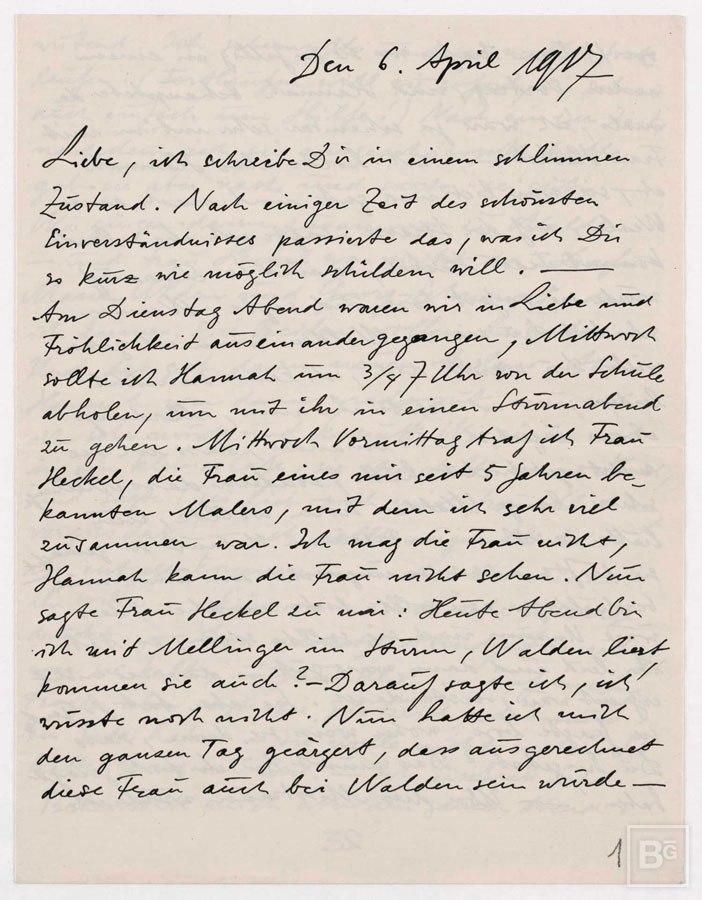 Den 6. April 1917
Liebe, ich schreibe Dir in einem schlimmen
Zustand. Nach einiger Zeit des schönsten
Einverständnisses passierte das, was ich Dir
so kurz wie möglich schildern will. —
Am Dienstag Abend waren wir in Liebe und
Fröhlichkeit auseinandergegangen, Mittwoch
sollte ich Hannah um 3/4 7 Uhr von der Schule
abholen, um mit ihr in einen Sturmabend
zu gehen. Mittwoch Vormittag traf ich Frau
Heckel, die Frau eines mir seit 5 Jahren be-
kannten Malers, mit dem ich sehr viel
zusammen war. Ich mag die Frau nicht,
Hannah kann die Frau nicht sehen. Nun
sagte Frau Heckel zu mir: Heute Abend bin
ich mit Mellinger im Sturm, Walden liest,
kommen sie auch? – Darauf sagte ich, ich
wüsste noch nicht. Nun hatte ich mich
den ganzen Tag geärgert, dass ausgerechnet
diese Frau auch bei Walden sein würde —
1
BG